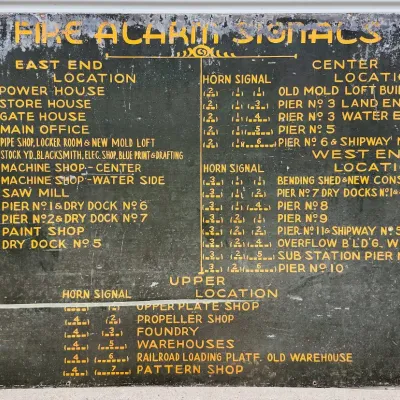 FIRE ALARM SIGNALS
EAST END
LOCATION
POWER HOUSE
STORE HOUSE
GATE HOUSE
MAIN OFFICE
PIPE SHOP, LOCKER ROOM & NEW MOLD LOFT
STOCK YD., BLACKSMITH, ELEC. SHOP, BLUE PRINT & DRAFTING
MACHINE SHOP - CENTER
MACHINE SHOP - WATER SIDE
SAW MILL
PIER Nº 1 & DRY DOCK Nº 6
PIER Nº 2 & DRY DOCK Nº 7
PAINT SHOP
DRY DOCK Nº 5
CENTER
HORN SIGNAL LOCATIO
OLD MOLD LOFT BUI
PIER Nº 3 LAND EN
PIER Nº 3 WATER E
PIER Nº 5
PIER Nº 6 & SHIPWAY
WEST EN
HORN SIGNAL LOCATI
BENDING SHED & NEW CONS
PIER Nº 7 DRY DOCKS Nº 1
PIER Nº 8
PIER Nº 9
PIER Nº 11 & SHIPWAY Nº 5
OVERFLOW B'L'D'G. W
SUB STATION PIER
PIER Nº 10
UPPER
HORN SIGNAL LOCATION
UPPER PLATE SHOP
4 2 PROPELLER SHOP
4 3 FOUNDRY
4 5 WAREHOUSES
4 6 RAILROAD LOADING PLATF. OLD WAREHOUSE
4 7 PATTERN SHOP